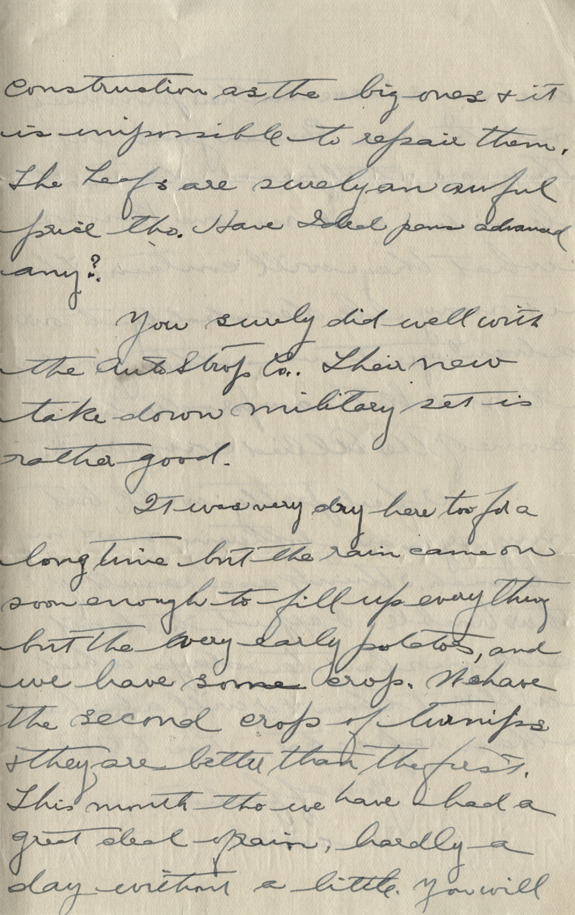 construction as the big ones & it
is impossible to repair them.
The Leafs are surely an awful
price tho. Have Ideal pens advanced
any?
You surely did well with
the AutoStrop Co.. Their new
take down military set is
rather good.
It was very dry here too for a
long time but the rain came on
soon enough to fill up everything
but the very early potatos, and
we have some crop. We have
the second crop of turnips
& they are better than the first.
This month tho we have had a
great deal of rain, hardly a
day without a little. You will